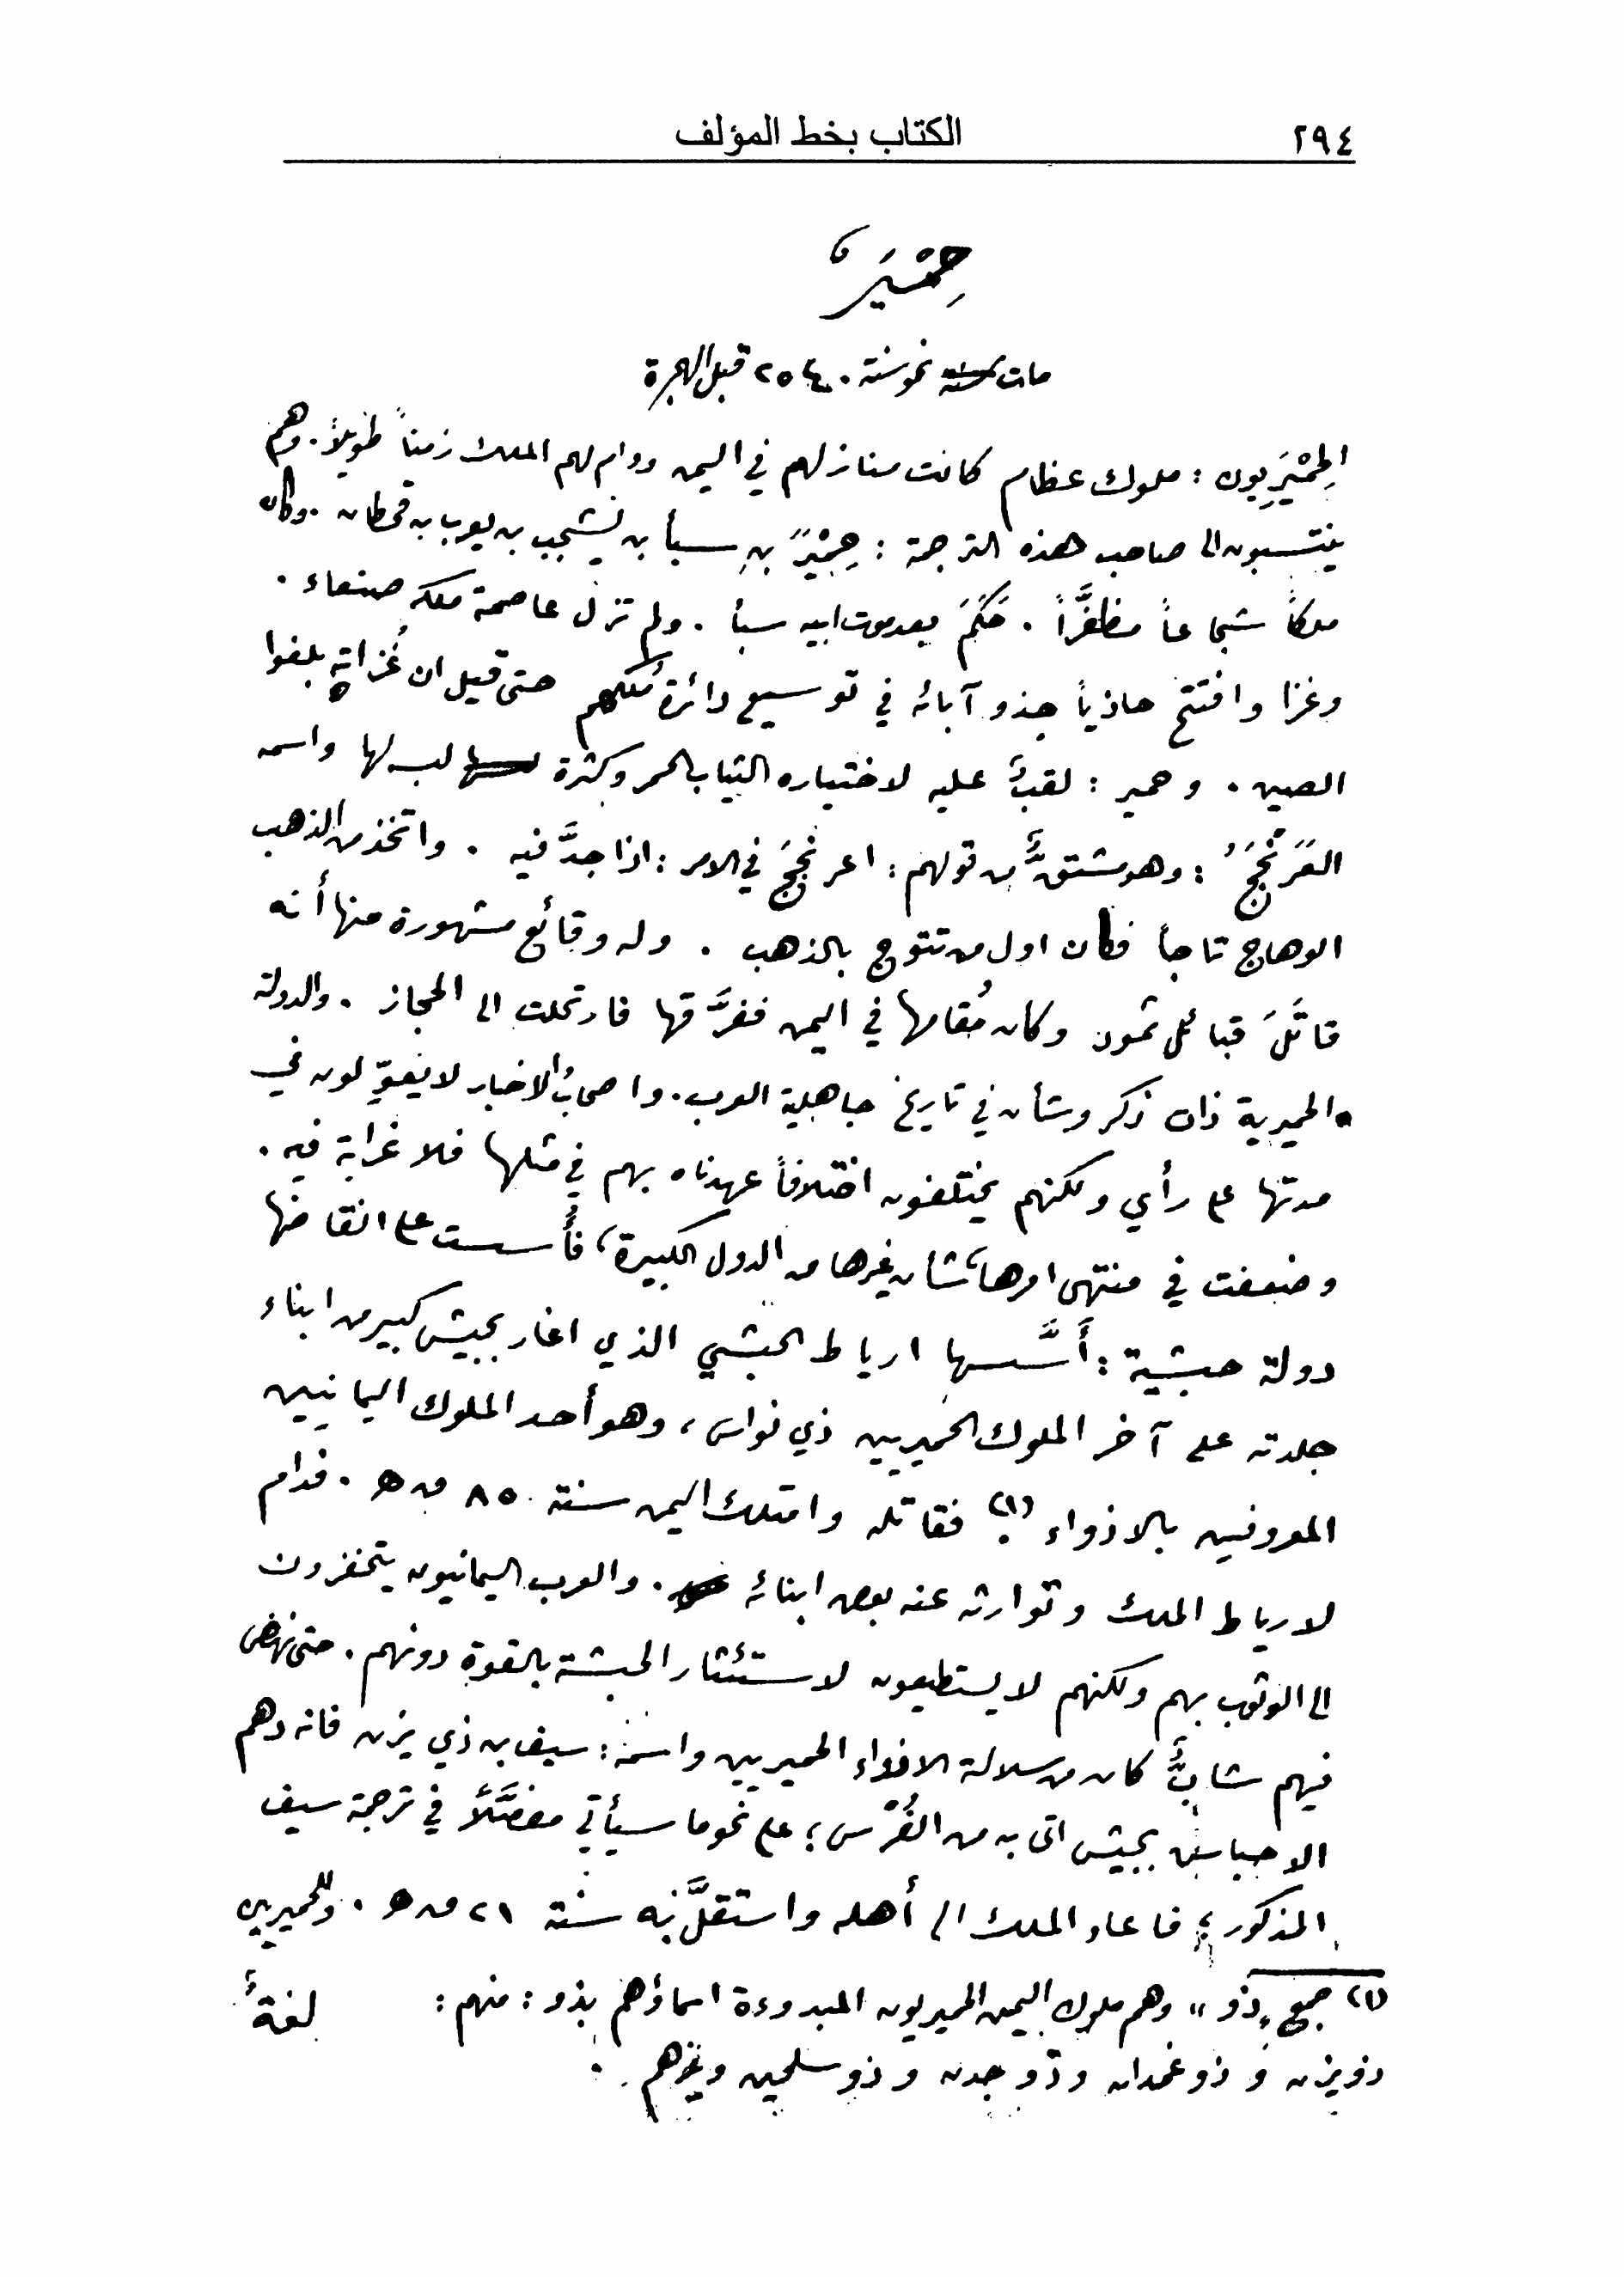 ٢٩٤ الكتاب بخط المؤلف
حِمْيَر
مات نحو سنة ٢٥٤٠ قبل الهجرة
الحِمْيَرِيون : ملوك عظام كانت منازلهم في اليمن ودام لهم الملك زمناً طويلاً. وهم
ينتسبون الى صاحب هذه الترجمة : حِمْيَرٌ بنِ سبأ بن يشجب بن يعرب بن قحطان . وكان
ملكاً شجاعاً مظفَّراً . حَكَمَ بعد موت ابيه سبأ . ولم تزل عاصمة ملكه صنعاء .
وغزا وافتتح حاذياً حذو آبائه في توسيع دائرة مُلكهم حتى قيل ان غُزاته بلغوا
الصين . وحمير : لقبٌ عليه لاختياره الثياب الحمر وكثرة لبسه لها واسمه
العَرَنْجَجُ : وهو مشتقٌّ من قولهم : اعرنجَجَ في الامر : اذا جدَّ فيه . واتخذ من الذهب
الوهاج تاجاً فكان اول من تتوج بالذهب . وله وقائع مشهورة منها أنه
قاتَلَ قبائل ثمود وكان مُقامها في اليمن ففرَّقها فارتحلت الى الحجاز . والدولة
الحميرية ذات ذكر وشأن في تاريخ جاهلية العرب . واصحابُ الاخبار لا يعوِّلون في
مدتها على رأي ولكنهم يختلفون اختلافاً عهدناه بهم في مثلها فلا غرابة فيه .
وضعفت في منتهى امرها، شأن غيرها من الدول الكبيرة، فأُسست على انقاضها
دولة حبشية : أَسَّسها ارياط الحبشي الذي اغار بجيش كبير من ابناء
جلدته على آخر الملوك الحميريين ذي نواس، وهو أحد الملوك اليمانيين
المعروفين بالاذواء (١) فقاتله وامتلك اليمن سنة ٨٥ ق ه . فدام
لارياط الملك وتوارثه عنه بعض ابنائه . والعرب اليمانيون يتحفزون
الى الوثوب بهم ولكنهم لا يستطيعون لاستئثار الحبشة بالقوة دونهم . حتى نهض
فيهم شابٌّ كان من سلالة الاذواء الحميريين واسمه : سيف بن ذي يزن فانه دهم
الاحباش بجيش اتى به من الفُرْس ؛ على نحو ما سيأتي مفصَّلاً في ترجمة سيف
المذكور ؛ فاعاد الملك الى أهله واستقلَّ به سنة ٢١ ق ه . وللحميريين
لغةٌ
(١) جمع "ذو" وهم ملوك اليمن الحميريون المبدوءة اسماؤهم بذو : منهم :
ذو يزن و ذو غمدان وذو جدن وذو سلحين وغيرهم .